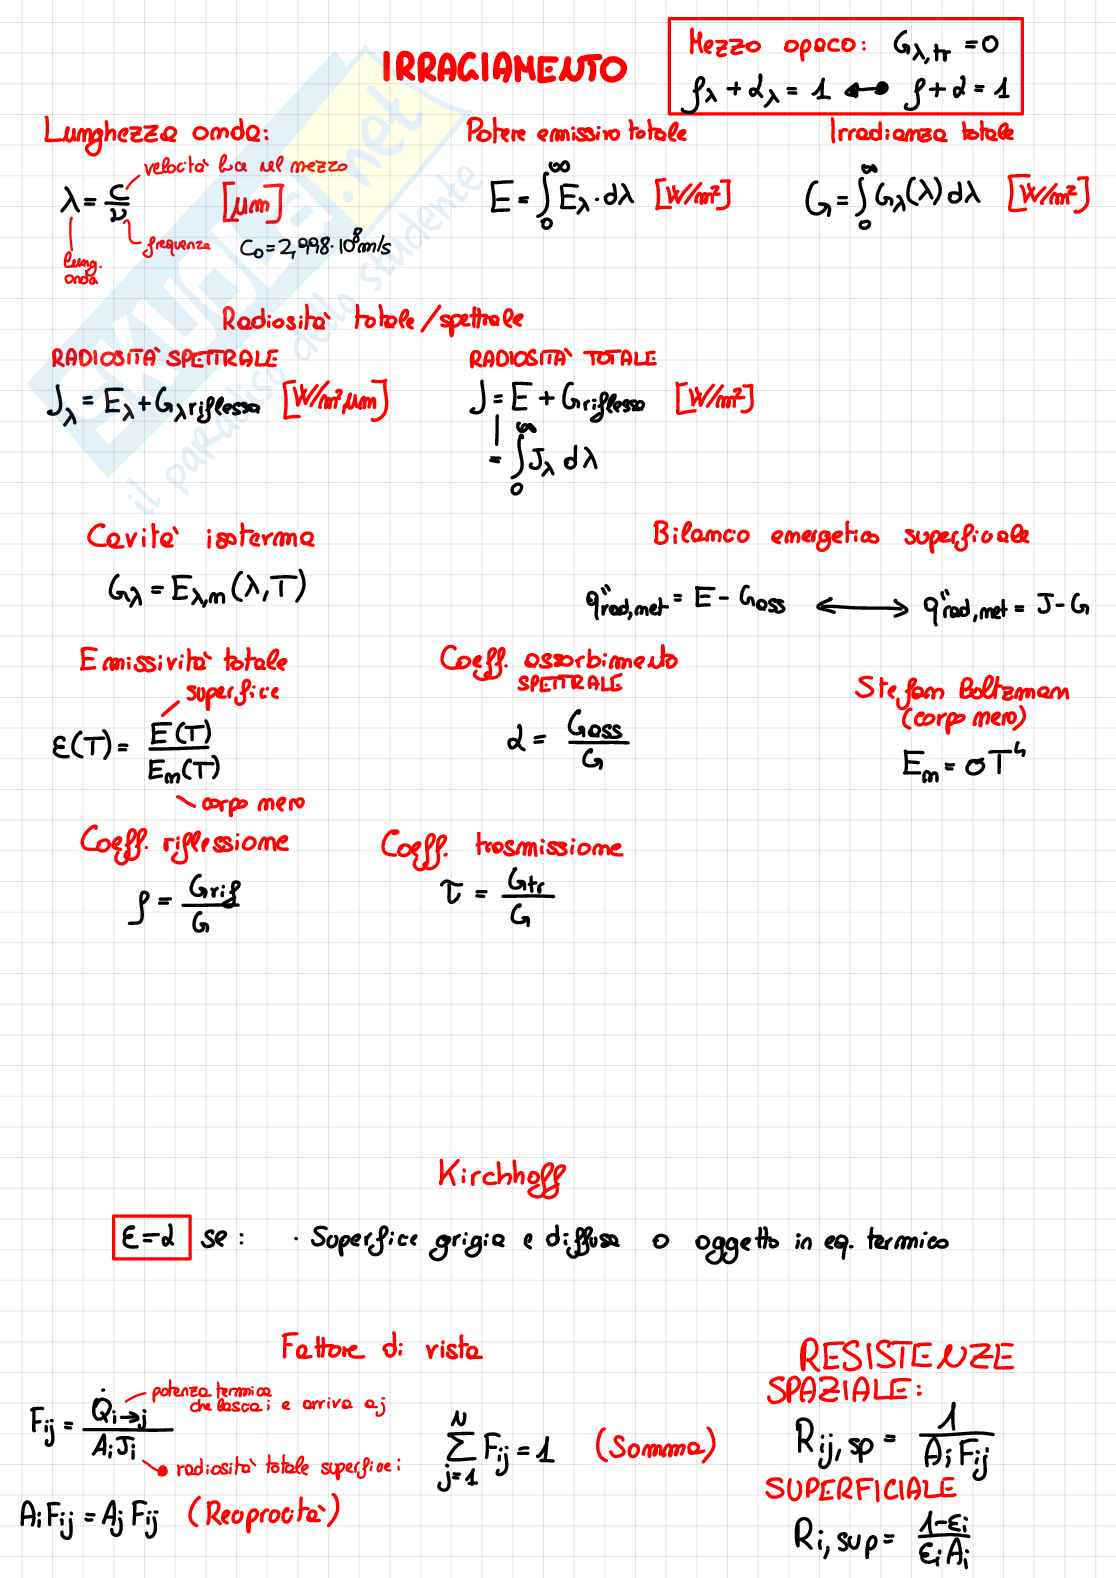 IRRAGIAMENTO
Mezzo opaco: G_λ,tr = 0
ρ_λ + α_λ = 1 ↔ ρ + α = 1
Lunghezza onda:
velocità luce nel mezzo
λ = c/ν [μm]
frequenza
lung. onda
C₀ = 2,998·10⁸ m/s
Potere emissivo totale
E = ∫₀^∞ E_λ · dλ [W/m²]
Irradianza totale
G = ∫₀^∞ G_λ(λ) dλ [W/m²]
Radiosità totale/spettrale
RADIOSITÀ SPETTRALE
J_λ = E_λ + G_λ riflessa [W/m²μm]
RADIOSITÀ TOTALE
J = E + G riflessa [W/m²]
= ∫₀^∞ J_λ dλ
Cavità isoterma
G_λ = E_λ,n (λ,T)
Bilanco energetico superficiale
q''rad,net = E - Gass ⟷ q''rad,net = J - G
Emissività totale
superfice
ε(T) = E(T) / E_n(T)
corpo nero
Coeff. assorbimento
SPETTRALE
α = Gass / G
Stefam Boltzman
(corpo nero)
E_n = σT⁴
Coeff. riflessione
ρ = Grif / G
Coeff. trasmissione
τ = Gtr / G
Kirchhoff
ε = α se: · Superfice grigia e diffusa o oggetto in eq. termico
Fattore di vista
potenza termica
che lascia i e arriva a j
F_ij = Q̇_i→j / A_i J_i
radiosità totale superfice i
Σ_{j=1}^{N} F_ij = 1 (Somma)
A_i F_ij = A_j F_ij (Reciprocità)
RESISTENZE
SPAZIALE:
R_ij,sp = 1 / A_i F_ij
SUPERFICIALE
R_i,sup = 1-ε_i / ε_i A_i
.net
il paradiso dello studente